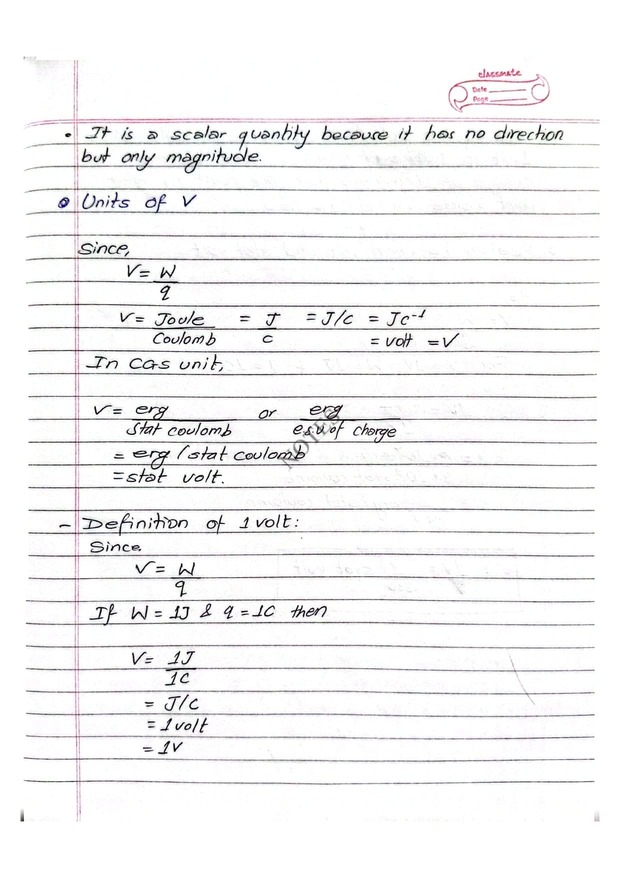 classmate
Date
Page
• It is a scalar quantity because it has no direction
but only magnitude.
Units of V
Since,
V = W
q
V = Joule = J = J/C = JC⁻¹
Coulomb C = volt = V
In CGS unit,
V = erg or erg
Stat coulomb e.s.u of charge
NOTES
= erg / stat coulomb
= stat volt.
- Definition of 1 volt:
Since.
V = W
q
If W = 1J & q = 1C then
V = 1J
1C
= J/C
= 1 volt
= 1V